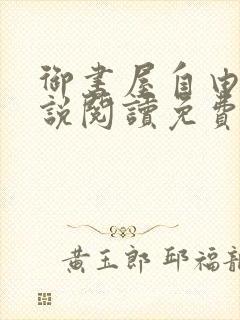 御書屋自由
說閱讀免費
黃玉郎 邱福龍